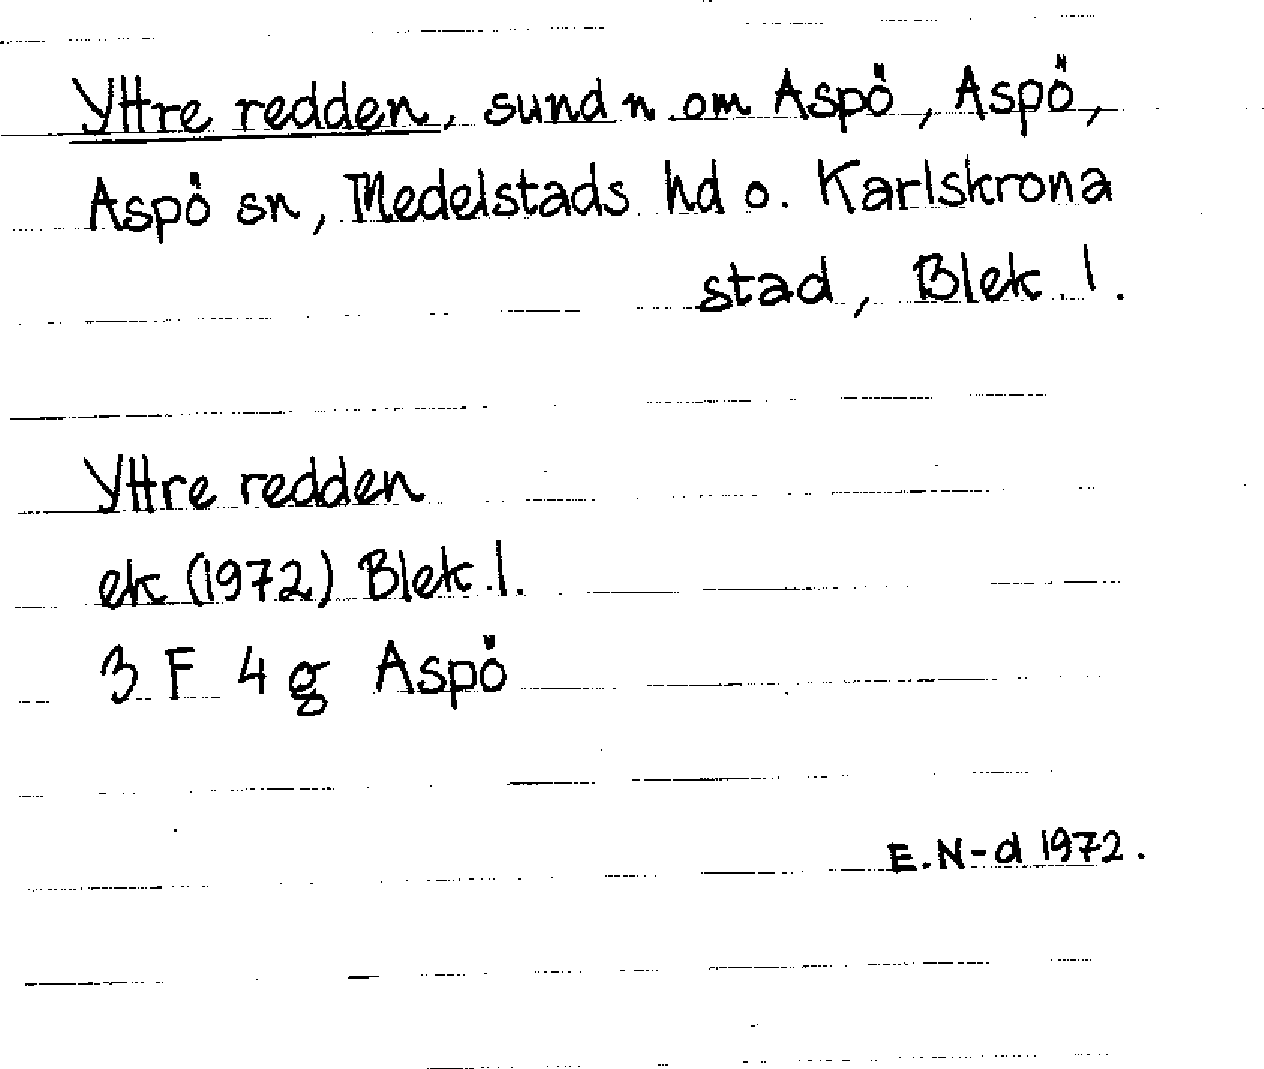 Yttre redden, sund n om Aspö, Aspö,
Aspö sn, Medelstads hd o. Karlskrona
stad, Blek. l.
Yttre redden
ek (1972) Blek. l.
3 F 4 g Aspö
E. N-d 1972.